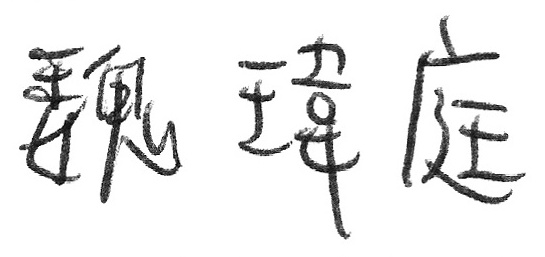 魏瑋庭